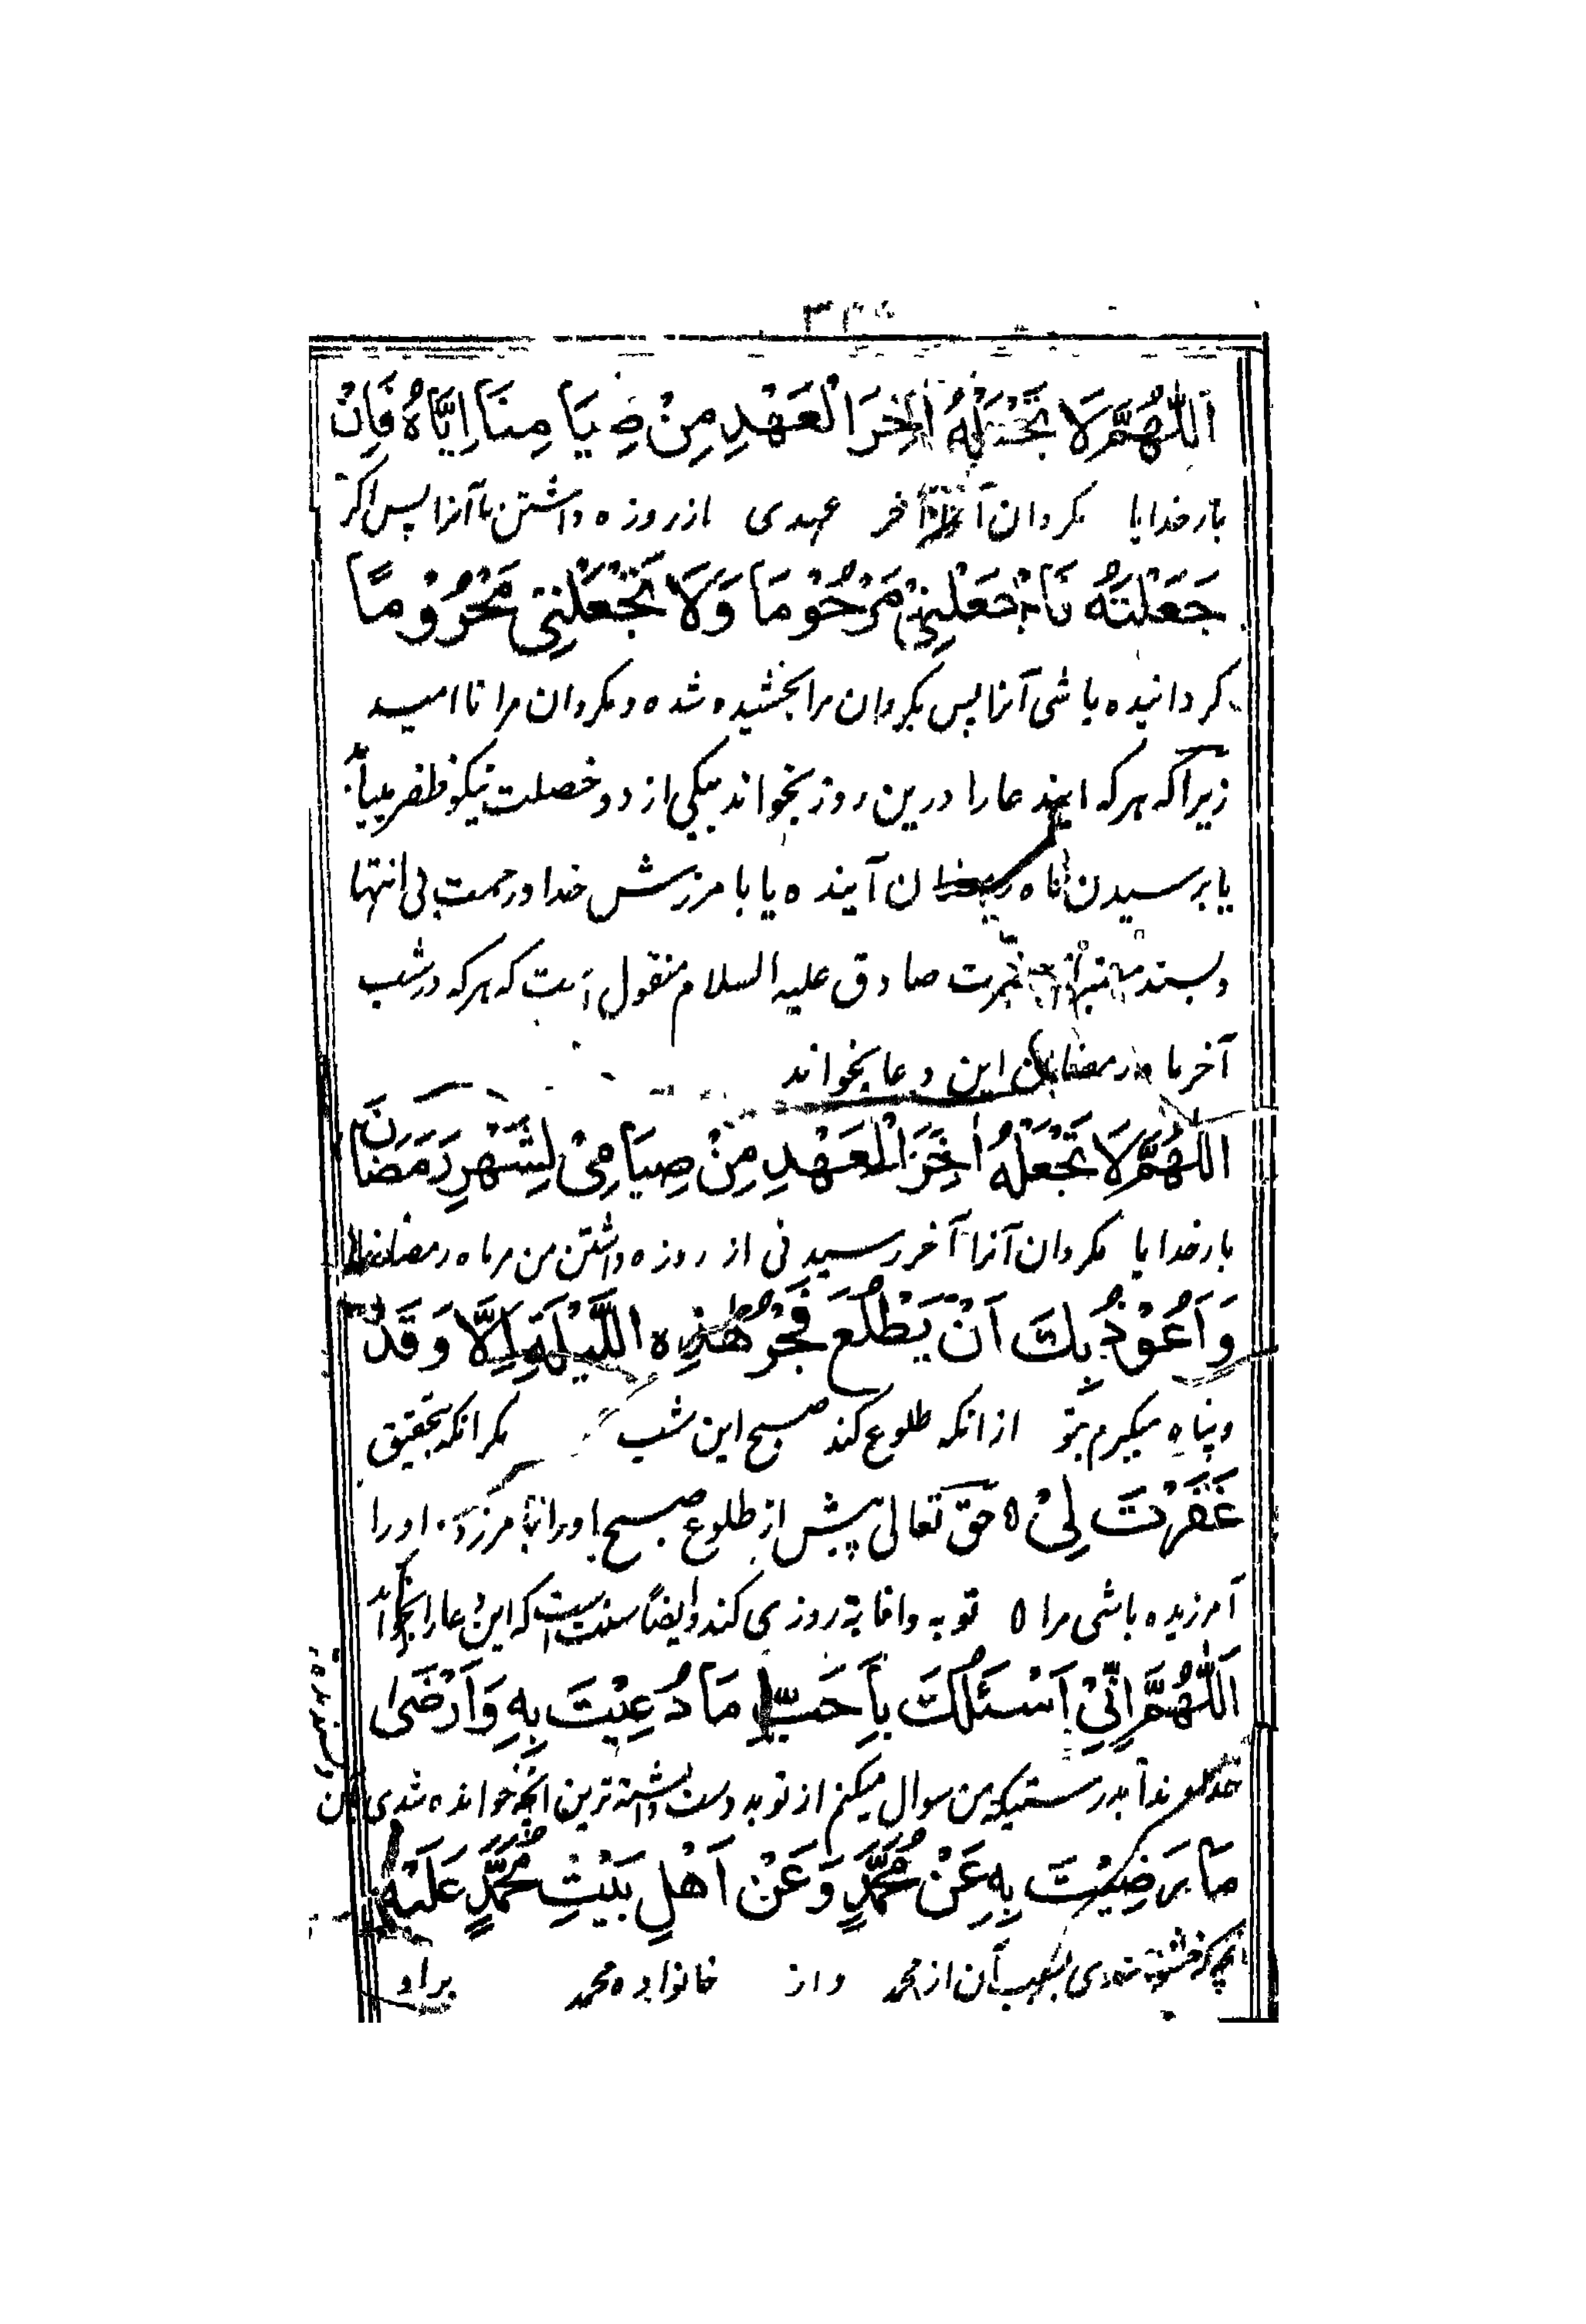 اَللّٰهُمَّ لَا تَجْعَلْهُ اٰخِرَ الْعَهْدِ مِنْ صِيَامِنَا اِيَّاهُ فَاِنْ
بارخدایا مگردان آخر عهدی از روزه داشتن ما آنرا پس اگر
جَعَلْتَهُ فَاجْعَلْنِيْ مَرْحُوْمًا وَلَا تَجْعَلْنِيْ مَحْرُوْمًا
گردانیده باشی آنرا پس بگردان مرا بخشیده شده و مگردان مرا ناامید
زیراکه هرکه ایندعا را درین روز بخواند بیکی از دو خصلت نیکو ظفر مییابد
یا برسیدن ماه رمضان آینده یا بامرزش خدا و رحمت بی انتها
و بسند معتبر از حضرت صادق علیه السلام منقول است که هرکه در شب
آخر ماه رمضان این دعا بخواند
اَللّٰهُمَّ لَا تَجْعَلْهُ اٰخِرَ الْعَهْدِ مِنْ صِيَامِيْ لِشَهْرِ رَمَضَانَ
بارخدایا مگردان آنرا آخر رسیدنی از روزه داشتن من مر ماه رمضان را
وَاَعُوْذُ بِكَ اَنْ يَطْلُعَ فَجْرُ هٰذِهِ اللَّيْلَةِ اِلَّا وَقَدْ
و پناه میگیرم بتو از انکه طلوع کند صبح این شب مگر انکه بتحقیق
غَفَرْتَ لِيْ ٥ حق تعالی پیش از طلوع صبح او را بیامرزد و او را
آمرزیده باشی مرا ٥ توبه و انابة روزی کند و ایضاً سنت است که این دعا را بخواند
اَللّٰهُمَّ اِنِّيْ اَسْئَلُكَ بِاَحَبِّ مَا دُعِيْتَ بِهِ وَاَرْضٰى
خداوندا بدرستیکه من سوال میکنم از تو بدوست داشته ترین انچه خوانده شدی بان
مَا رَضِيْتَ بِهِ عَنْ مُحَمَّدٍ وَعَنْ اَهْلِ بَيْتِ مُحَمَّدٍ عَلَيْهِ
انچه خشنود شدی بسبب آن از محمد و از خانواده محمد بر او